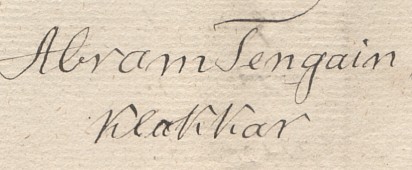 Abram Tengain
Klokkar